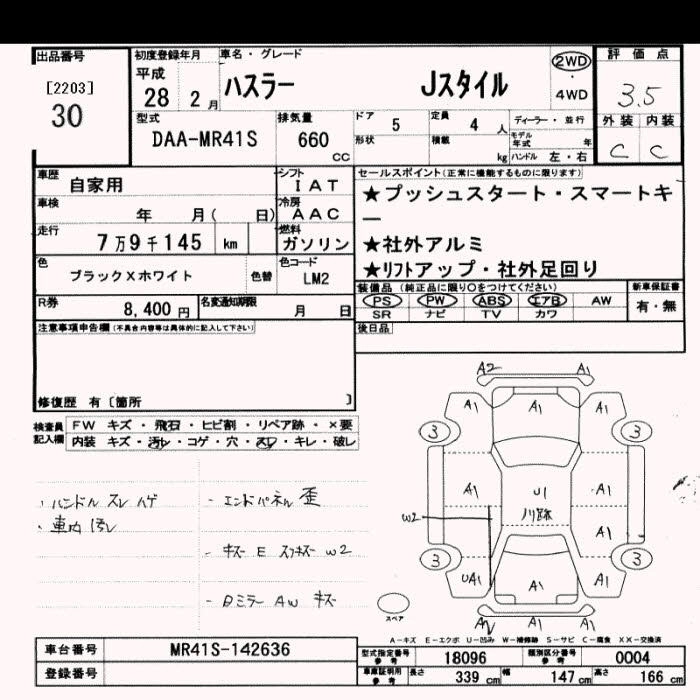 出品番号
[2203]
30
初度登録年月
平成
28 2月
車名・グレード
ハスラー Jスタイル
2WD
・
4WD
評価点
3.5
外装 内装
C C
型式
DAA-MR41S
排気量
660
CC
ドア 5
形状
定員 4 人
積載 kg
ディーラー・並行
モデル年式 年
ハンドル 左・右
車歴 自家用
シフト IAT
車検 年 月( 日)
冷房 AAC
走行 7万9千145 km
燃料 ガソリン
色 ブラックXホワイト 色替
色コード LM2
R券 8,400円
名変通知期限 月 日
セールスポイント(正常に機能するものに限ります)
★プッシュスタート・スマートキ
ー
★社外アルミ
★リフトアップ・社外足回り
装備品(純正品に限り○をつけてください)
PS PW ABS エアB AW
SR ナビ TV カワ
新車保証書
有・無
後日品
注意事項申告欄(不具合内容等は具体的に記入して下さい)
修復歴 有〔箇所 〕
検査員
記入欄
FW キズ・飛石・ヒビ割・リペア跡・×要
内装 キズ・汚レ・コゲ・穴・スレ・キレ・破レ
・ハンドル スレ ハゲ
・車内 汚レ
- エンドパネル 歪
- キズ E スリキズ W2
- Dミラー AW キズ
A2 A1
A1 A1 A1
3 3
A1 U1 A1
W2
A1
3 3
UA1 A1 A1
A1
スペア
A-キズ E-エクボ U-凹み W-補修跡 S-サビ C-腐食 XX-交換済
車台番号 MR41S-142636
登録番号
型式指定番号
参考
18096
類別区分番号
参考
0004
車庫証明用
参考
長さ 339 cm
幅 147 cm
高さ 166 cm